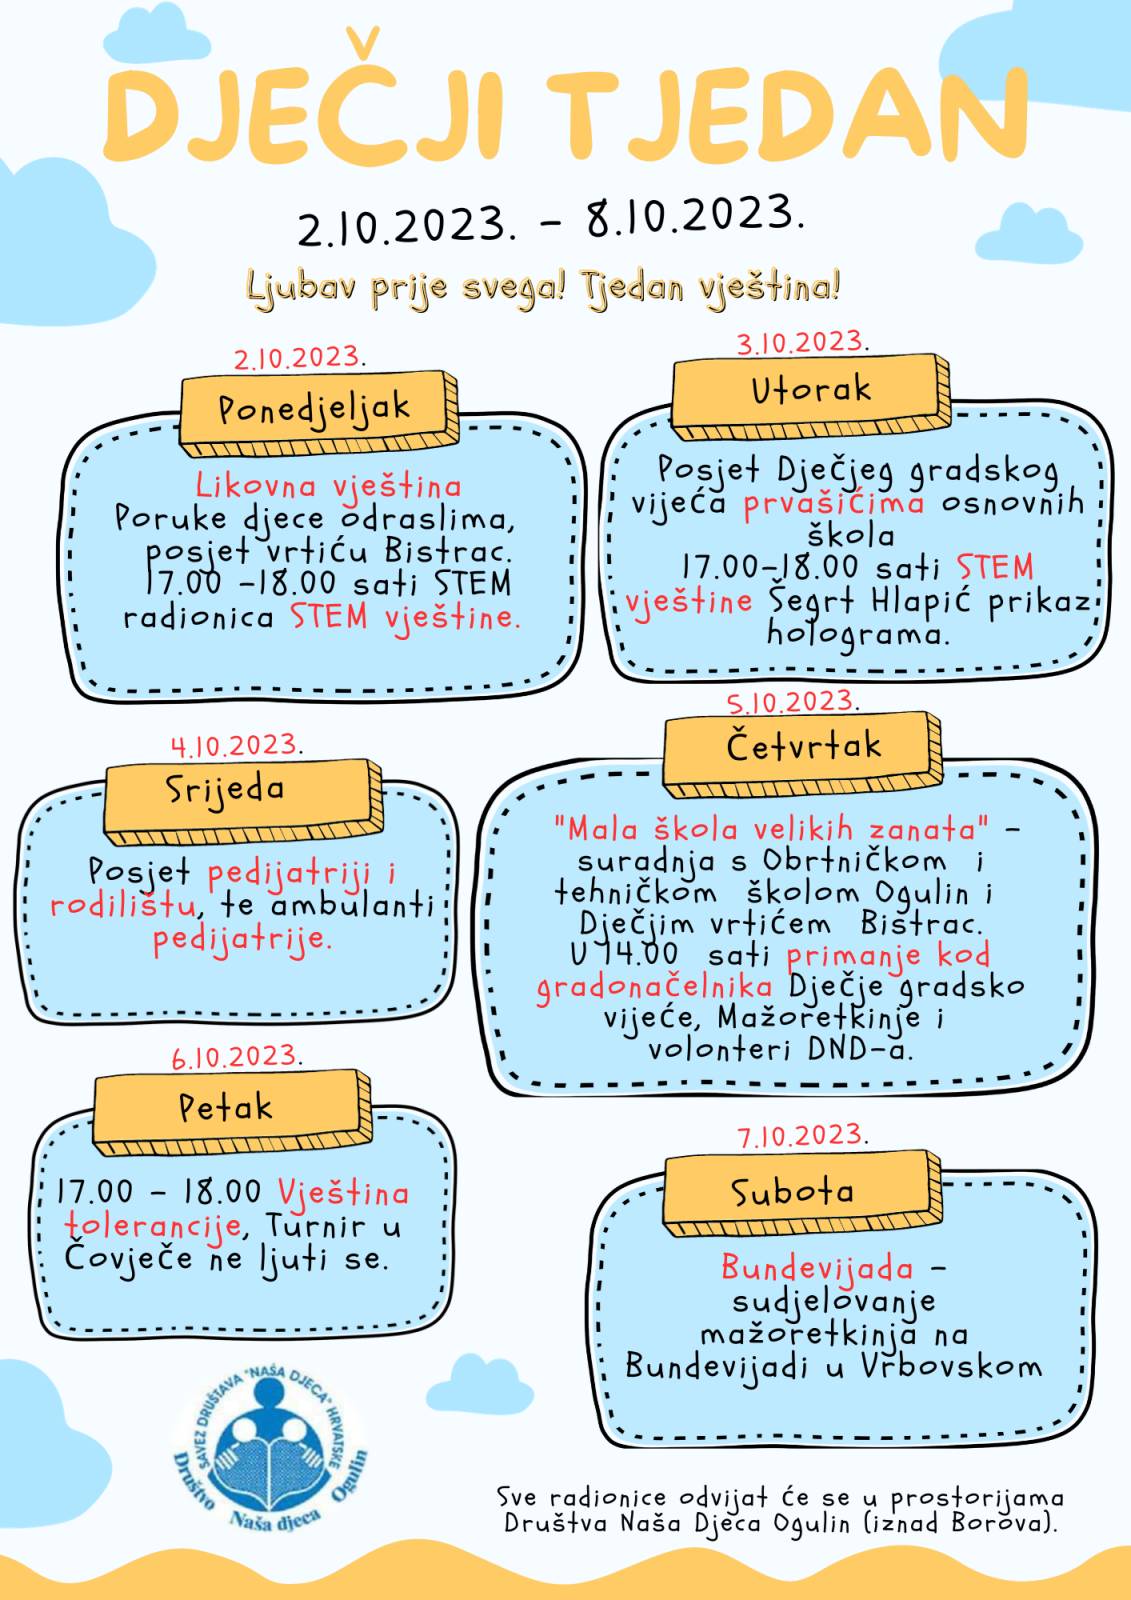 DJEČJI TJEDAN
2.10.2023. - 8.10.2023.
Ljubav prije svega! Tjedan vještina!
2.10.2023.
Ponedjeljak
Likovna vještina
Poruke djece odraslima,
posjet vrtiću Bistrac.
17.00 -18.00 sati STEM
radionica STEM vještine.
3.10.2023.
Utorak
Posjet Dječjeg gradskog
vijeća prvašićima osnovnih
škola
17.00-18.00 sati STEM
vještine Šegrt Hlapić prikaz
holograma.
4.10.2023.
Srijeda
Posjet pedijatriji i
rodilištu, te ambulanti
pedijatrije.
5.10.2023.
Četvrtak
"Mala škola velikih zanata" -
suradnja s Obrtničkom i
tehničkom školom Ogulin i
Dječjim vrtićem Bistrac.
U 14.00 sati primanje kod
gradonačelnika Dječje gradsko
vijeće, Mažoretkinje i
volonteri DND-a.
6.10.2023.
Petak
17.00 - 18.00 Vještina
tolerancije, Turnir u
Čovječe ne ljuti se.
7.10.2023.
Subota
Bundevijada -
sudjelovanje
mažoretkinja na
Bundevijadi u Vrbovskom
SAVEZ DRUŠTAVA "NAŠA DJECA" HRVATSKE
Društvo Naša djeca Ogulin
Sve radionice odvijat će se u prostorijama
Društva Naša Djeca Ogulin (iznad Borova).